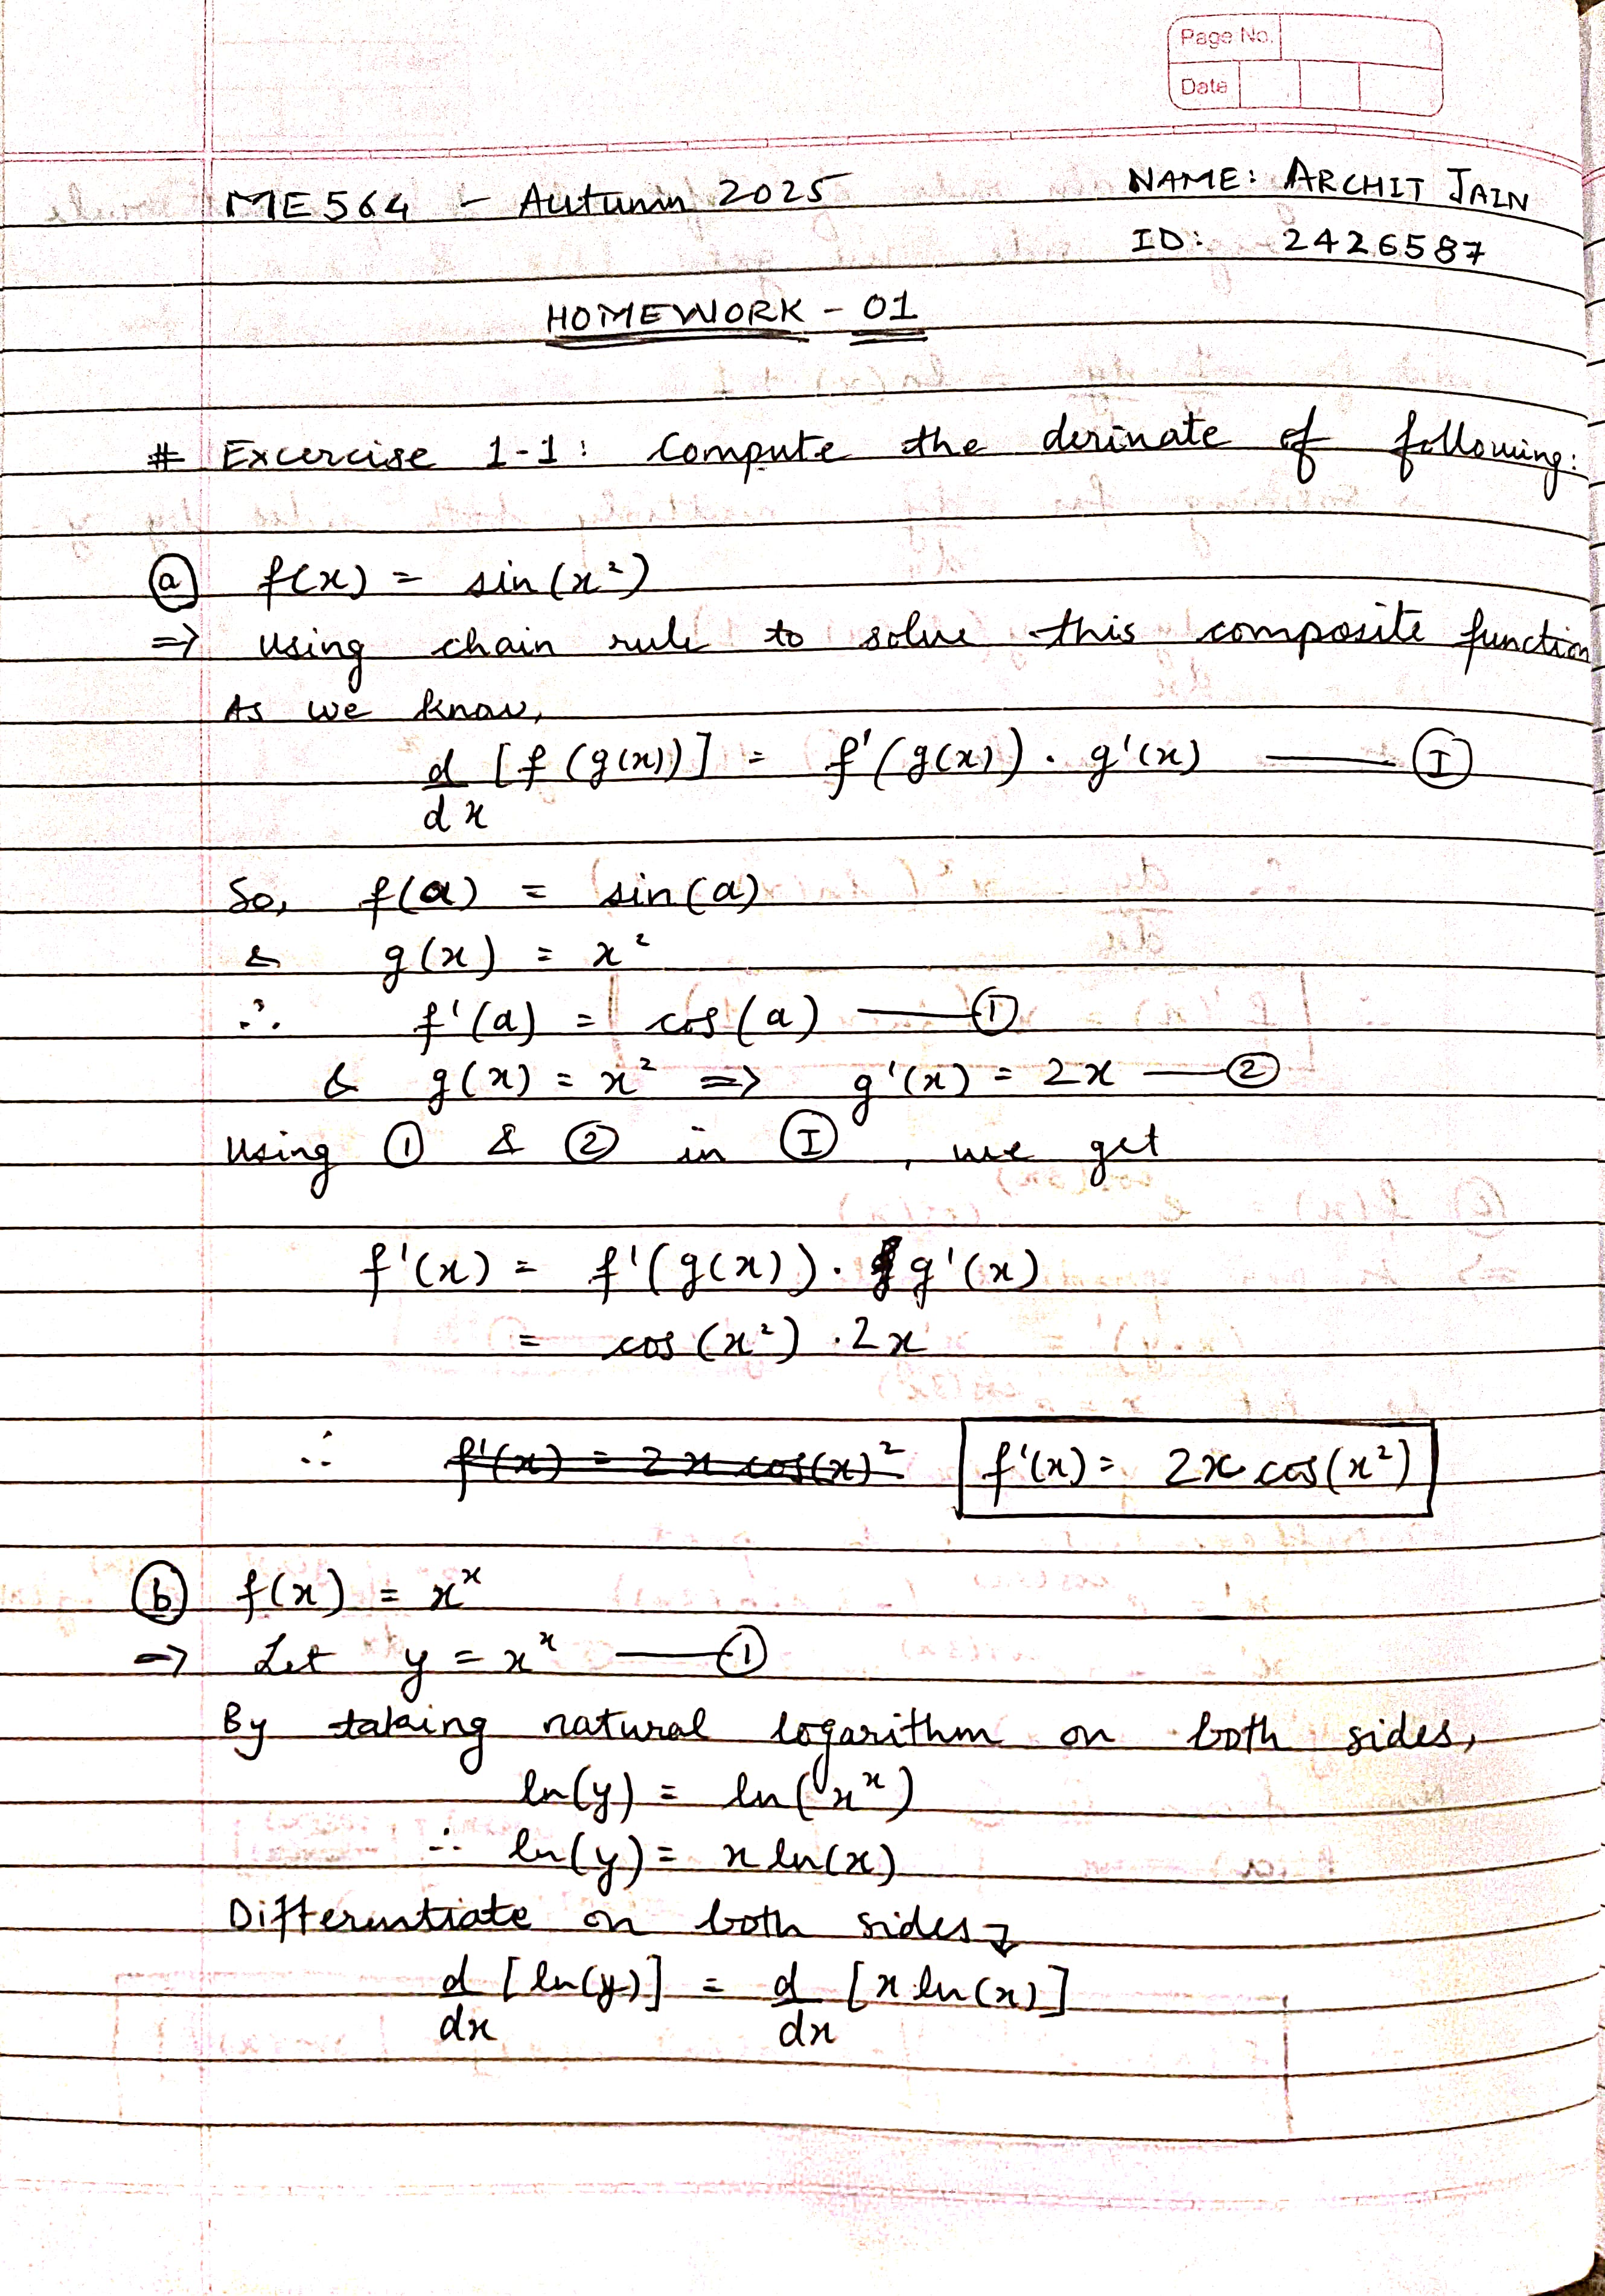 Page No.
Date
ME564 - Autumn 2025
NAME: ARCHIT JAIN
ID: 2426587
HOMEWORK - 01
# Excercise 1-1: Compute the derinate of following:
(a) f(x) = sin(x²)
=> Using chain rule to solve this composite function
As we know,
d/dx [f(g(x))] = f'(g(x)) . g'(x) —— (I)
So, f(a) = sin(a)
& g(x) = x²
∴ f'(a) = cos(a) —— (1)
& g(x) = x² => g'(x) = 2x —— (2)
Using (1) & (2) in (I), we get
f'(x) = f'(g(x)) . g'(x)
= cos(x²) . 2x
∴ f'(x) = 2x cos(x)² f'(x) = 2x cos(x²)
(b) f(x) = xˣ
=> Let y = xˣ —— (1)
By taking natural logarithm on both sides,
ln(y) = ln(xˣ)
∴ ln(y) = x ln(x)
Differentiate on both sides↴
d/dx [ln(y)] = d/dx [x ln(x)]